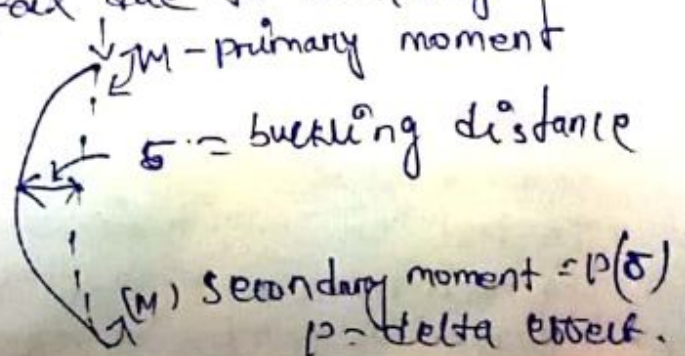 due to
M - primary moment
δ = buckling distance
(M) secondary moment = P(δ)
P-delta effect.